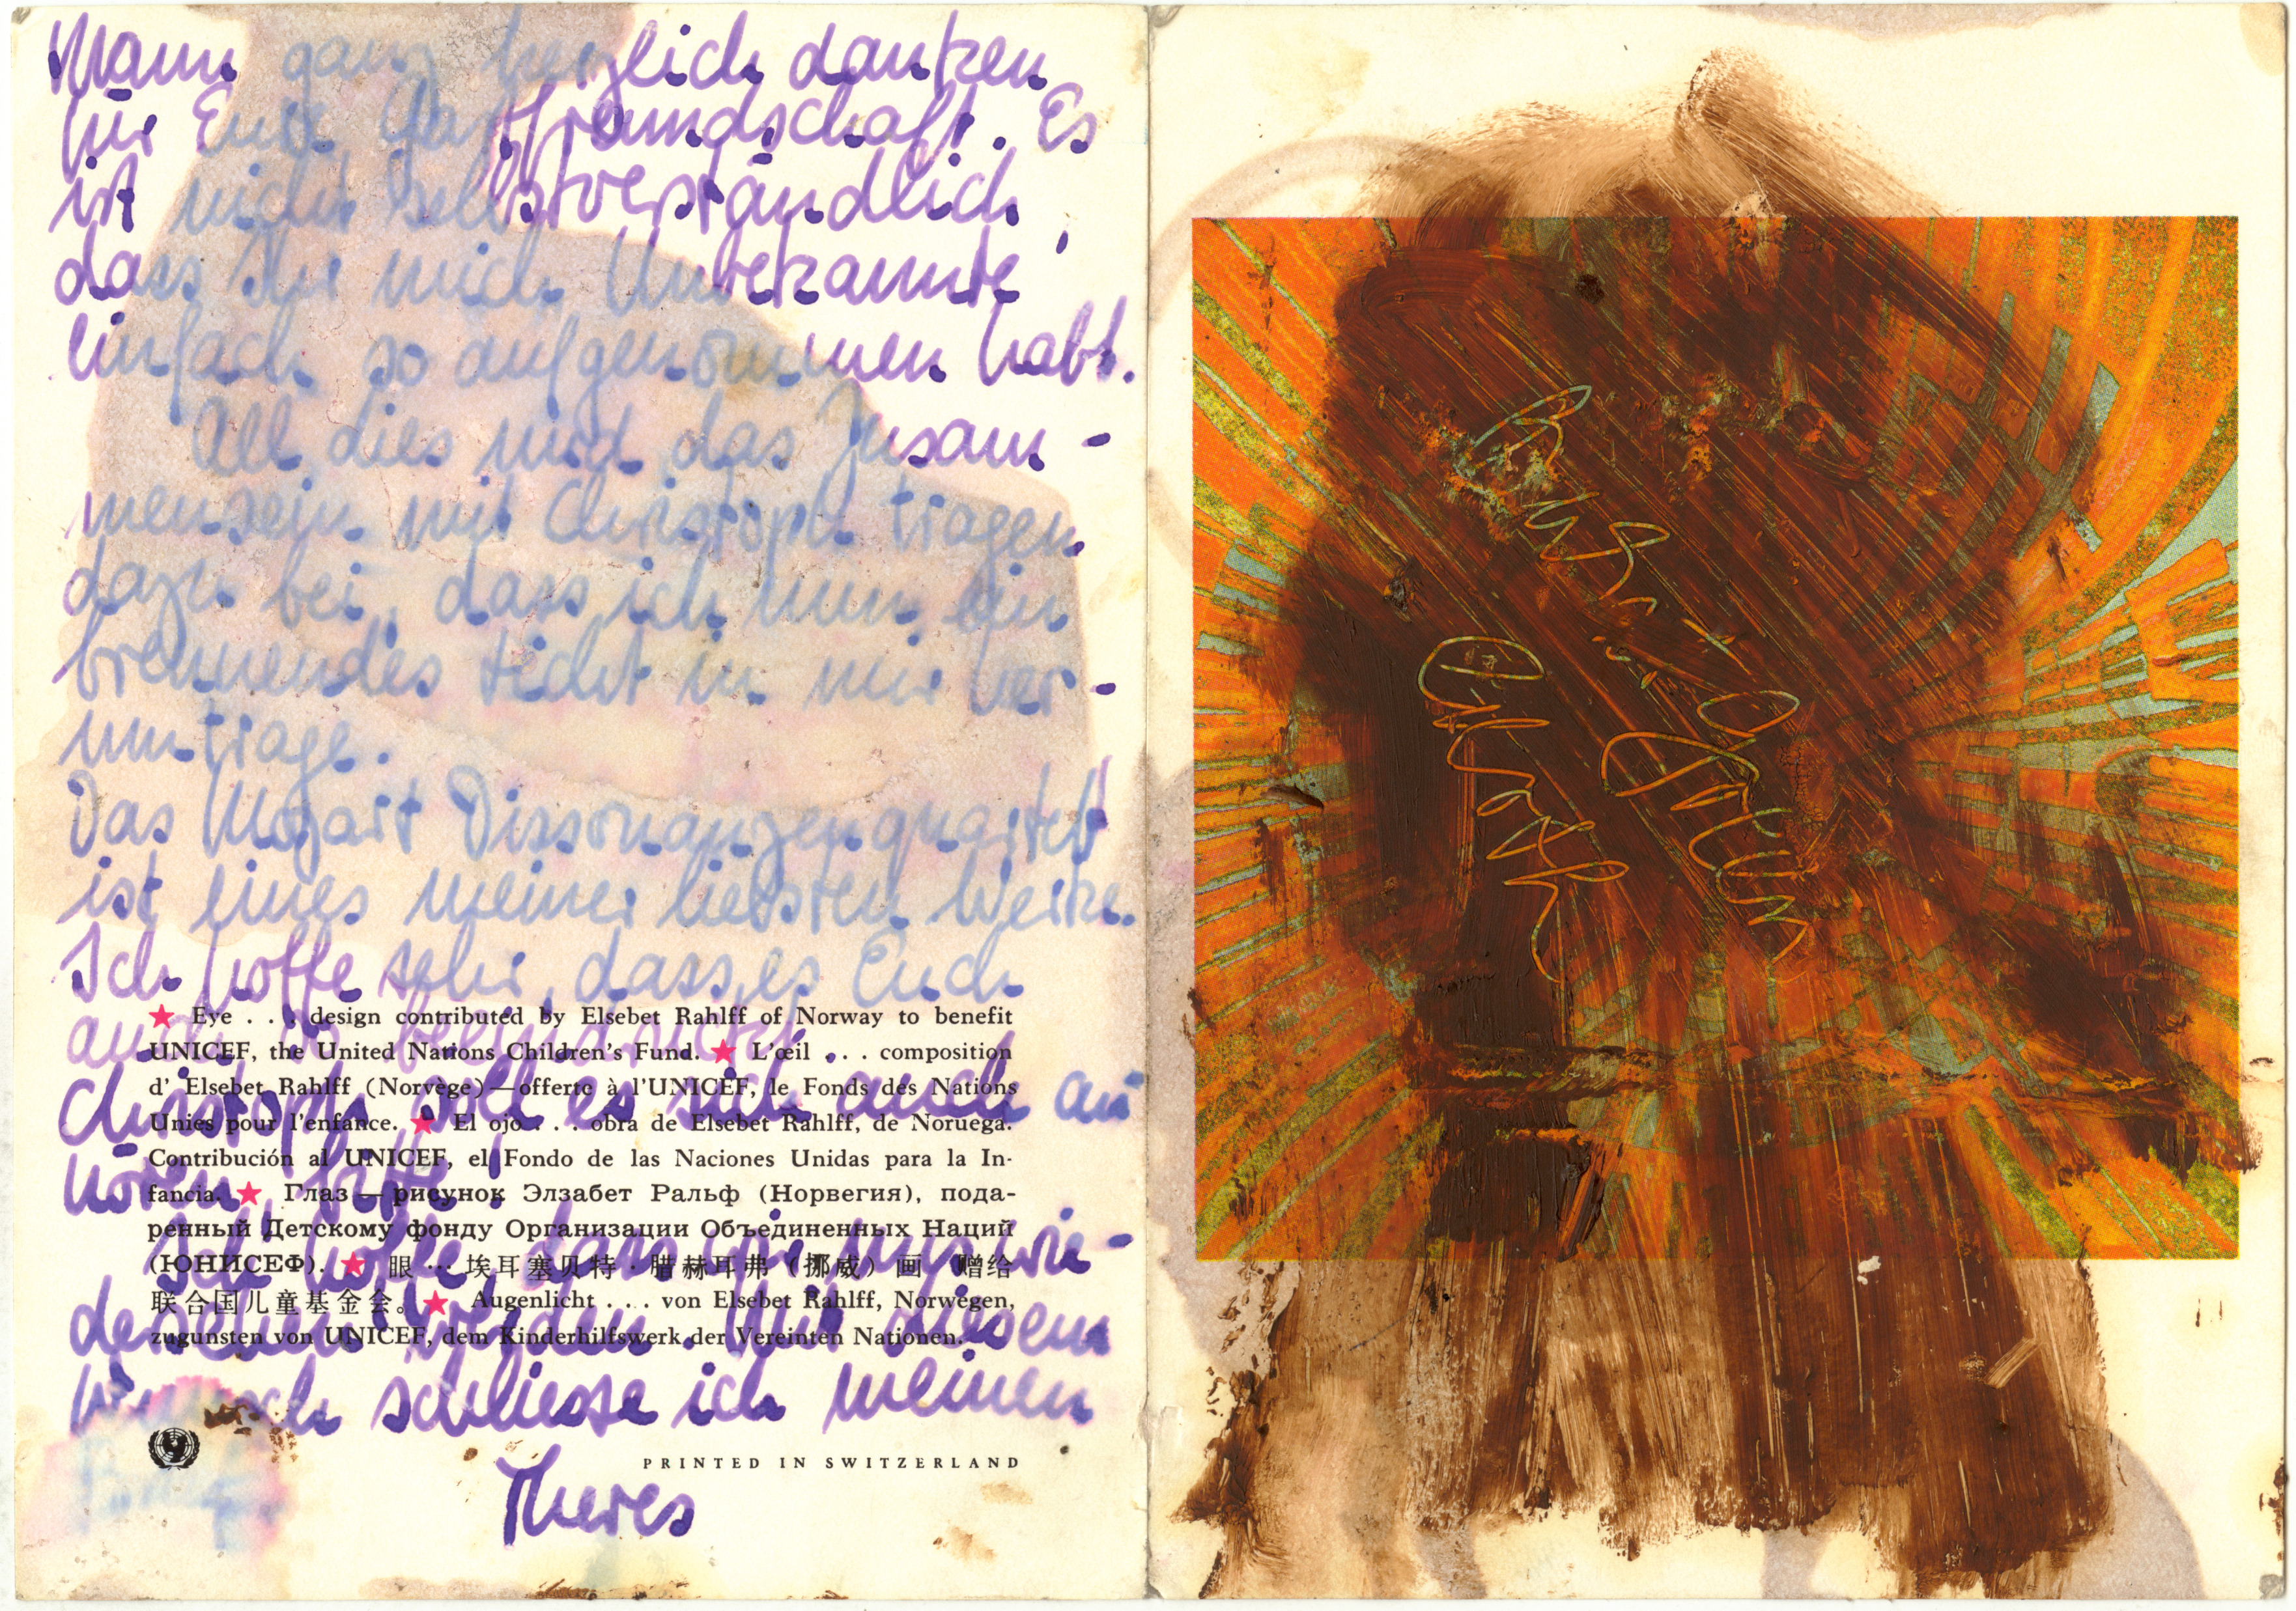 Mann ganz herzlich danken
für Eure Gastfreundschaft. Es
ist nicht selbstverständlich,
dass Ihr mich Unbekannte
einfach so aufgenommen habt.
All dies und das Zusam-
mensein mit Christoph tragen
dazu bei, dass ich nun ein
brennendes Licht in mir her-
umtrage.
Das Mozart Dissonanzenquartett
ist eines meiner liebsten Werke.
Ich hoffe sehr, dass es Euch
auch so
Christoph soll es sich auch an
hören, bitte!
Ich hoffe, dass wir uns wie-
dersehen werden. Mit diesem
Wunsch schliesse ich meinen
Theres
★ Eye . . . design contributed by Elsebet Rahlff of Norway to benefit
UNICEF, the United Nations Children's Fund. ★ L'œil . . . composition
d' Elsebet Rahlff (Norvège)—offerte à l'UNICEF, le Fonds des Nations
Unies pour l'enfance. ★ El ojo . . . obra de Elsebet Rahlff, de Noruega.
Contribución al UNICEF, el Fondo de las Naciones Unidas para la In-
fancia. ★ Глаз — рисунок Элзабет Ральф (Норвегия), пода-
ренный Детскому фонду Организации Объединенных Наций
(ЮНИСЕФ). ★ 眼 … 埃耳塞贝特 · 腊赫耳弗（挪威）画 赠给
联合国儿童基金会。★ Augenlicht . . . von Elsebet Rahlff, Norwegen,
zugunsten von UNICEF, dem Kinderhilfswerk der Vereinten Nationen.
PRINTED IN SWITZERLAND